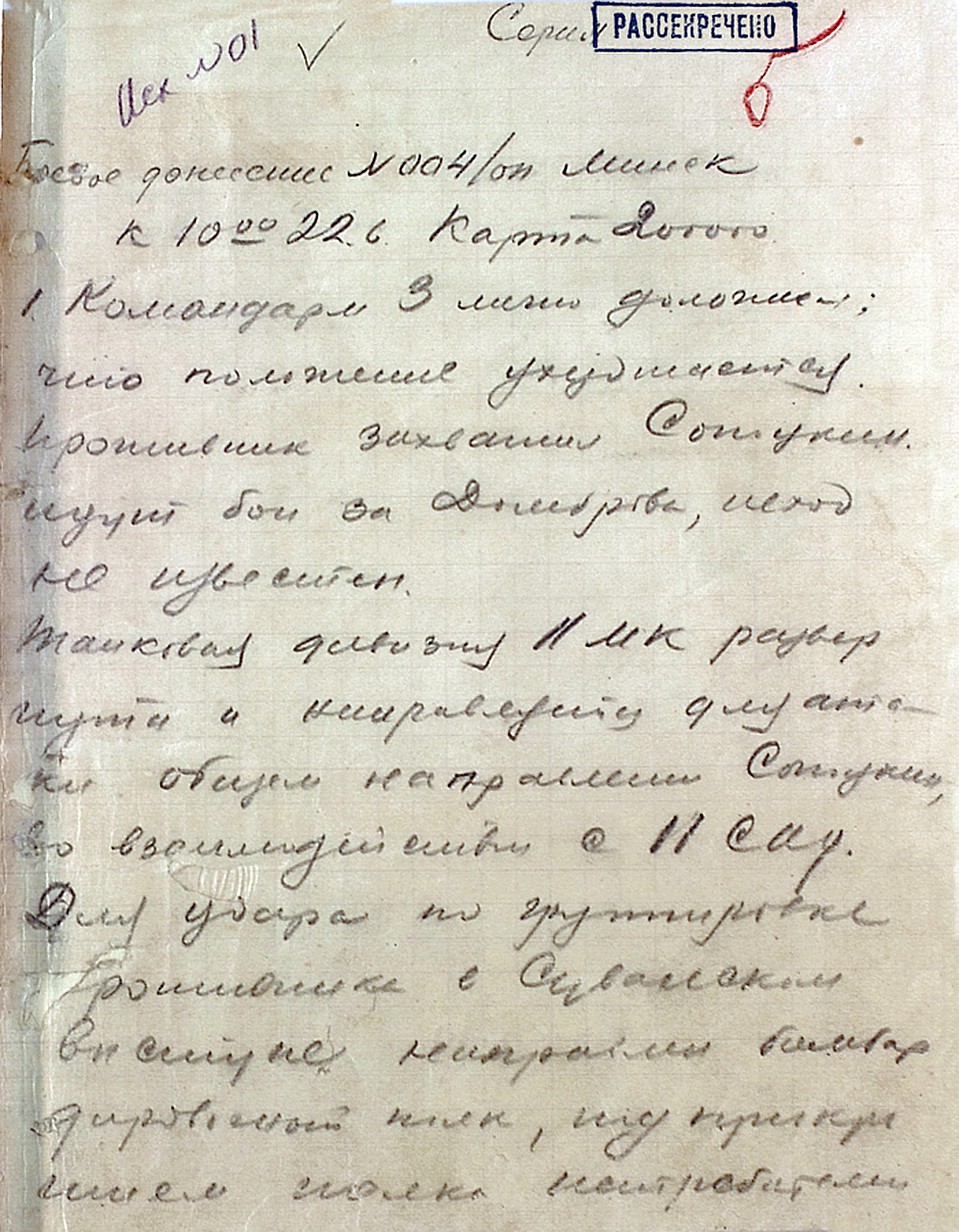 Серия РАССЕКРЕЧЕНО
Исх №01
Боевое донесение №004/оп Минск
к 10 00 22.6. Карта
1. Командарм 3 лично доложил:
что положение ухудшается.
Противник захватил Сопуцкин.
идут бои за Домброва, исход
не известен.
Танковая дивизия 11 МК развер
нута и направляется для ата-
ки общем направлении Сопуцкин,
во взаимодействии с 11 САД.
Для удара по группировке
Противника в Сувалском
выступе направлен бомбар
дировочный полк, под прикры
тием полка истребителей